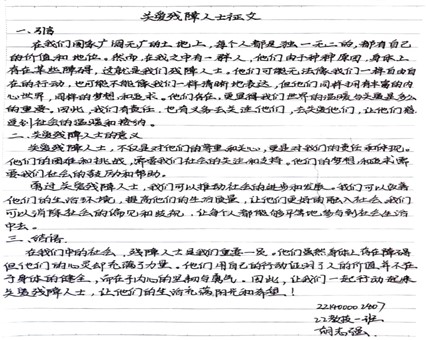 关爱残障人士征文
一、引言
在我们国家广阔无广的土地上，每个人都是独一无二的，都有自己
的价值和地位。然而，在我之中有一群人，他们由于种种原因，身体上
存在某些障碍，这就是我们残障人士。他们可能无法像我们一样自由自
在的行动，也可能不能像我们一样清晰地表达，但他们同样拥有丰富的内
心世界，同样的梦想和追求。他们存在，更显得我们世界的温暖与关爱是多么
的重要。因此，我们有责任，也有义务去关注他们，去关爱他们，让他们感
受到社会的温暖和接纳。
二、关爱残障人士的意义
关爱残障人士，不仅是对他们的尊重和关心，更是对我们的责任和体现。
他们的困难和挑战，需要我们社会的关注和支持。他们的梦想和追求需
要我们社会的鼓励和帮助。
通过关爱残障人士，我们可以推动社会的进步和发展。我们可以改善
他们的生活环境，提高他们的生活质量，让他们更好的融入社会。我们
可以消除社会的偏见和歧视，让每个人都能够平等地参与到社会生活
中去。
三、结语
在我们中的社会，残障人士是我们重要一员。他们虽然身体上存在障碍
但他们的心灵却充满了力量。他们用自己的行动证明了人的价值并不在
于身体的健全，而在于内心的坚韧与勇气。因此，让我们一起行动起来
关爱残障人士，让他们的生活充满阳光和希望！
22级教技一班
胡志强